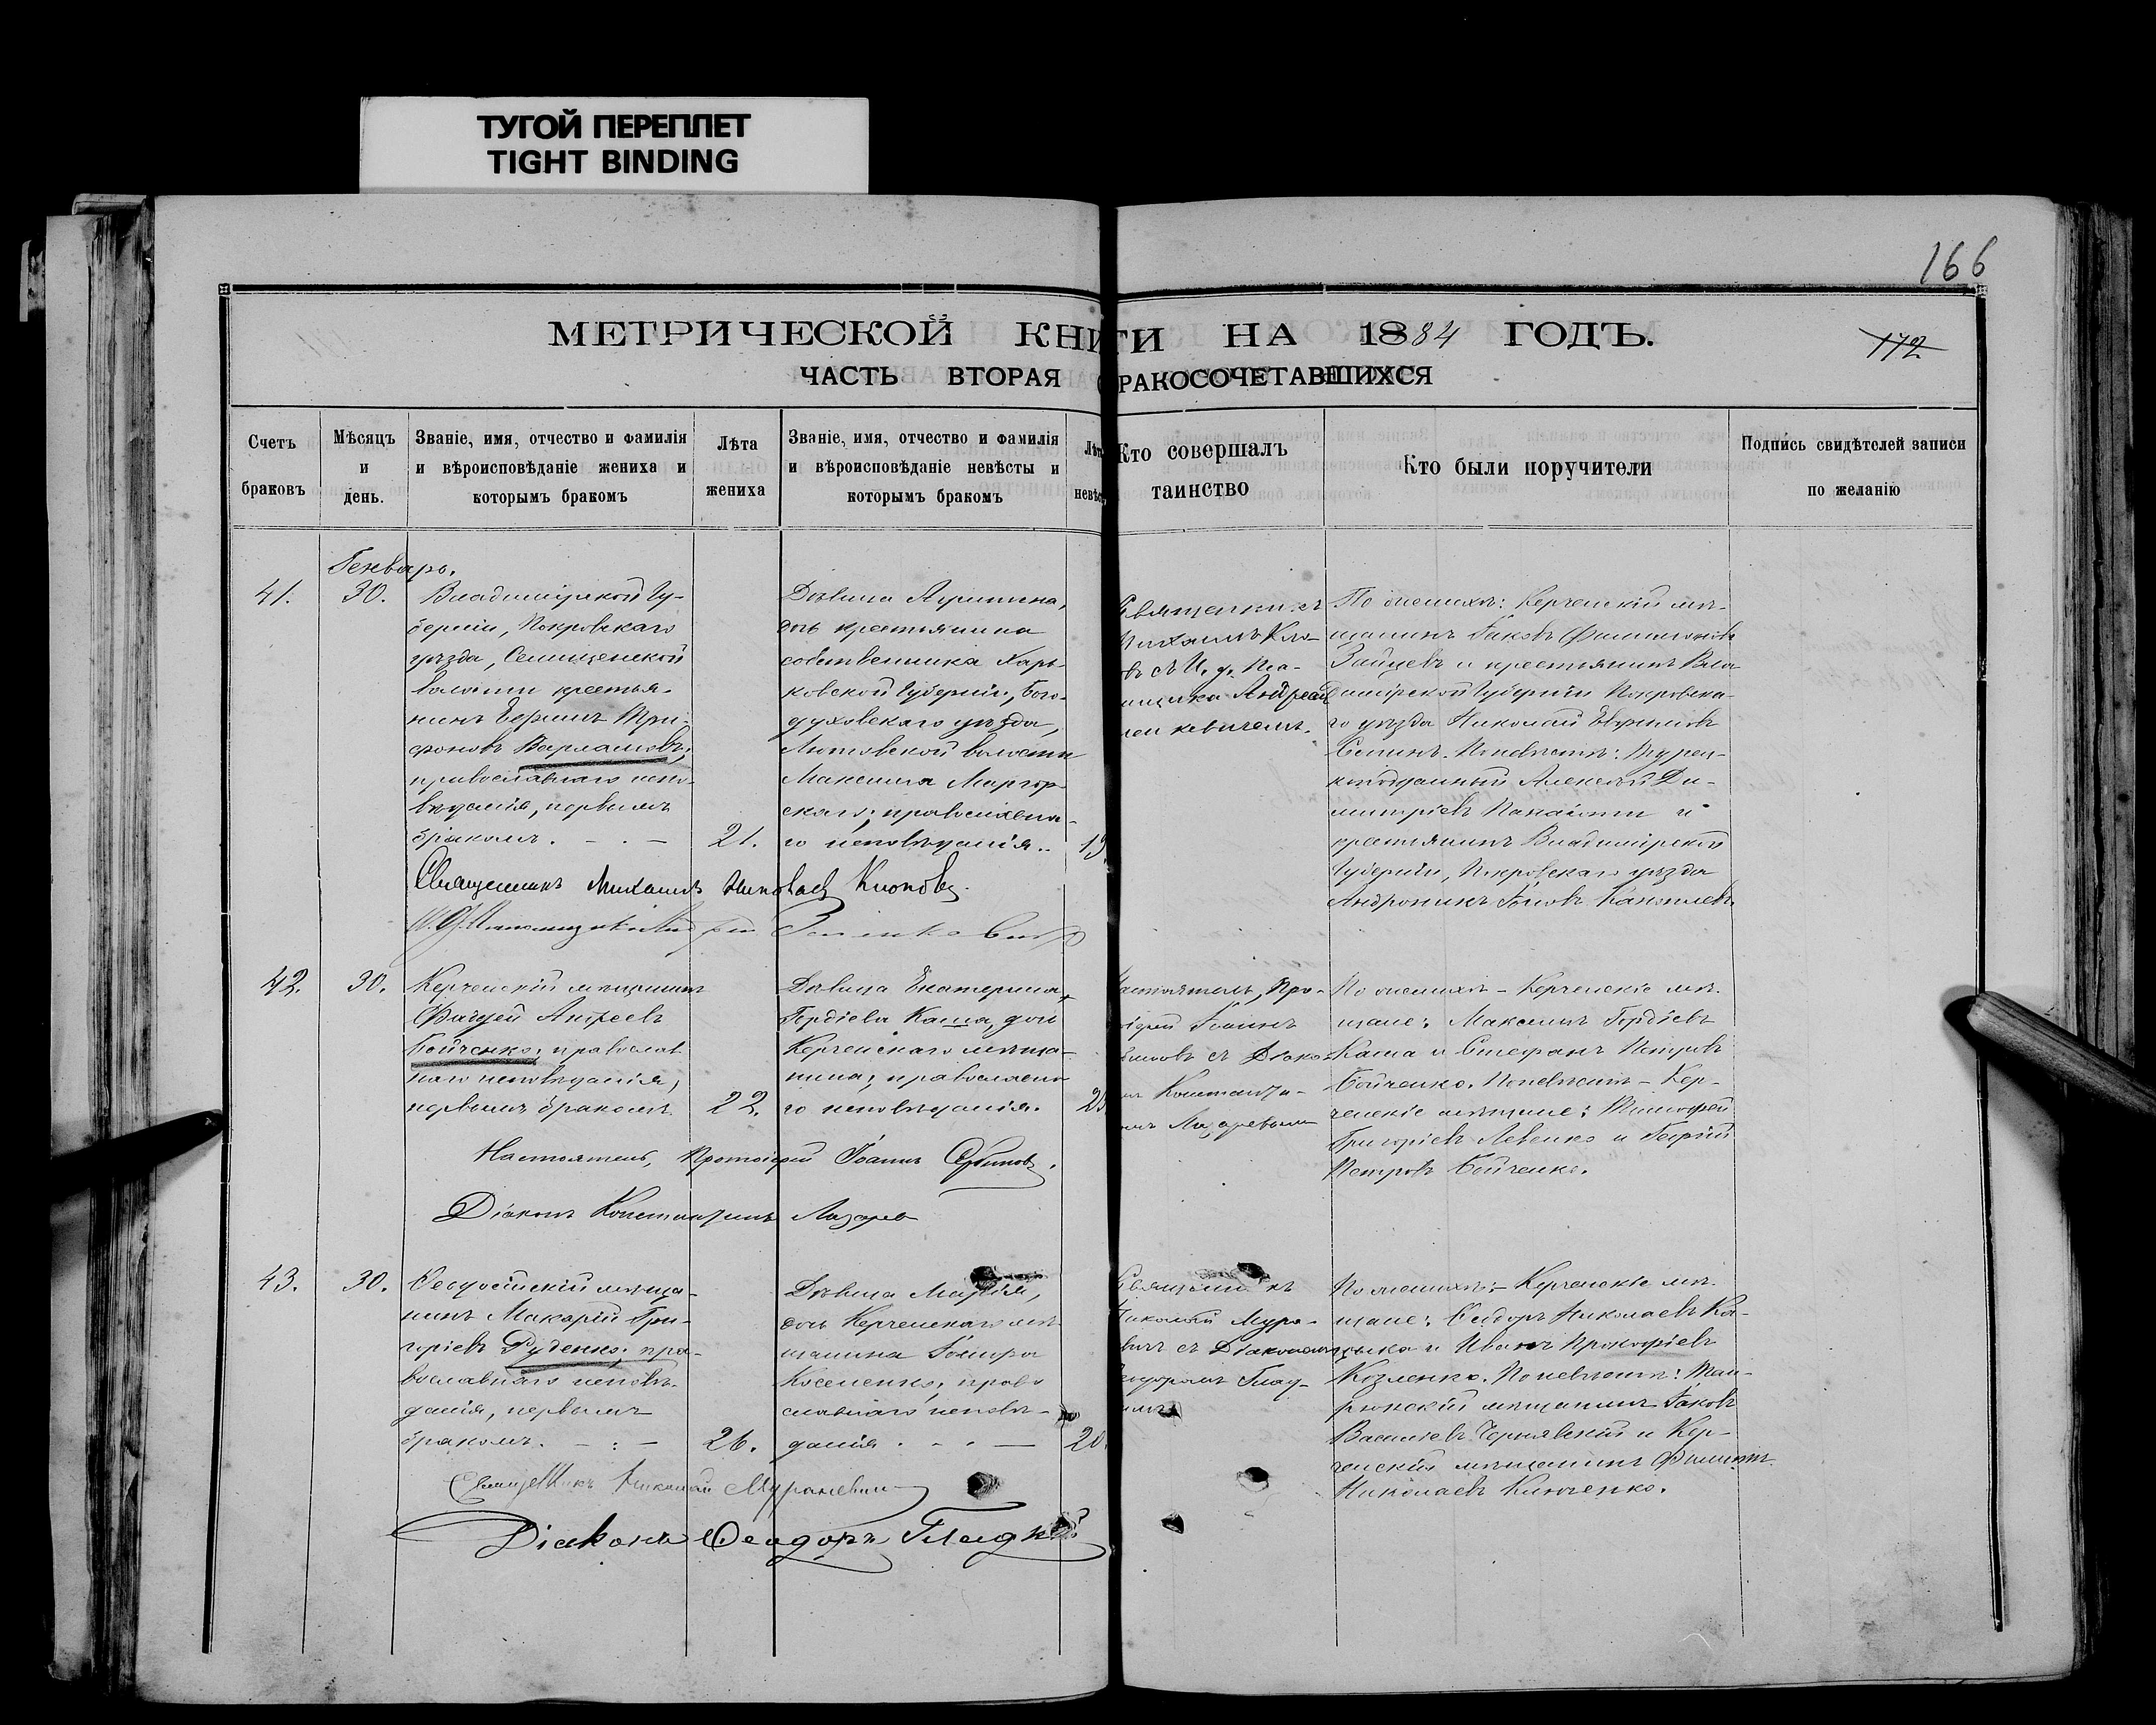 ТУГОЙ ПЕРЕПЛЕТ
TIGHT BINDING
166
МЕТРИЧЕСКОЙ КНИГИ НА 1884 ГОДЪ.
172
ЧАСТЬ ВТОРАЯ О БРАКОСОЧЕТАВШИХСЯ
Счетъ браковъ
Мѣсяцъ и день.
Званіе, имя, отчество и фамилія
и вѣроисповѣданіе жениха и
которымъ бракомъ
Лѣта жениха
Званіе, имя, отчество и фамилія
и вѣроисповѣданіе невѣсты и
которымъ бракомъ
Кто совершалъ
таинство
Кто были поручители
Подпись свидѣтелей записи
по желанію
Генварь.
41.
30.
Владимірской Гу-
берніи, Покровскаго
уѣзда, Селищенской
волости крестья-
нинъ Ефимъ Три-
фоновъ Варламовъ,
православнаго испо-
вѣданія, первымъ
бракомъ.
21.
Дѣвица
дочь крестьянина
собственника Харь-
ковской Губерніи, Бого-
духовскаго уѣзда,
Лютовской волости
Максима
православна-
го исповѣданія.
Священникъ
Андреемъ
По женихѣ: Керченскій мѣ-
щанинъ Іаковъ Филимоновъ
Зайцевъ и крестьянинъ Вла-
димірской Губерніи Покровска-
го уѣзда Николай Евфимовъ
По невѣстѣ: Турец-
коподданный Алексѣй Ди-
митріевъ Панаіоти и
крестьянинъ Владимірской
Губерніи, Покровскаго уѣзда
Андроникъ
Священникъ Михаилъ
42.
30.
Керченскій мѣщанинъ
Андреевъ
Бойченко, православ-
наго исповѣданія,
первымъ бракомъ.
22.
Дѣвица Екатерина
Гордіева Каша, дочь
Керченскаго мѣща-
нина, православна-
го исповѣданія.
Настоятель, Про-
Іоаннъ
съ Діако-
Константи-
Лазаревымъ
По женихѣ – Керченскіе мѣ-
щане: Максимъ Гордіевъ
Каша и Стефанъ Петровъ
Бойченко. По невѣстѣ – Кер-
ченскіе мѣщане: Тимофей
Григоріевъ Левенко и Георгій
Петровъ Бойченко.
Настоятель, Протоіерей Іоаннъ
Діаконъ Константинъ Лазарев
43.
30.
Ѳеодосійскій мѣща-
нинъ Макарій Гри-
горіевъ Руденко, пра-
вославнаго исповѣ-
данія, первымъ
бракомъ.
26.
Дѣвица Марія,
дочь Керченскаго мѣ-
щанина
право
славнаго исповѣ-
данія
20
Священникъ
Николай Мура-
съ Діакономъ
Ѳеодоромъ Глад-
По женихѣ: – Керченскіе мѣ-
щане: Николаевъ Ко-
и Иванъ Прокофіевъ
Козленко. По невѣстѣ: Тем-
рюкскій мѣщанинъ Іаковъ
Васильевъ Чернявскій и Кер-
ченскій мѣщанинъ Филиппъ
Николаевъ Ключенко.
Священникъ Николай
Діаконъ Ѳеодоръ Гладкій